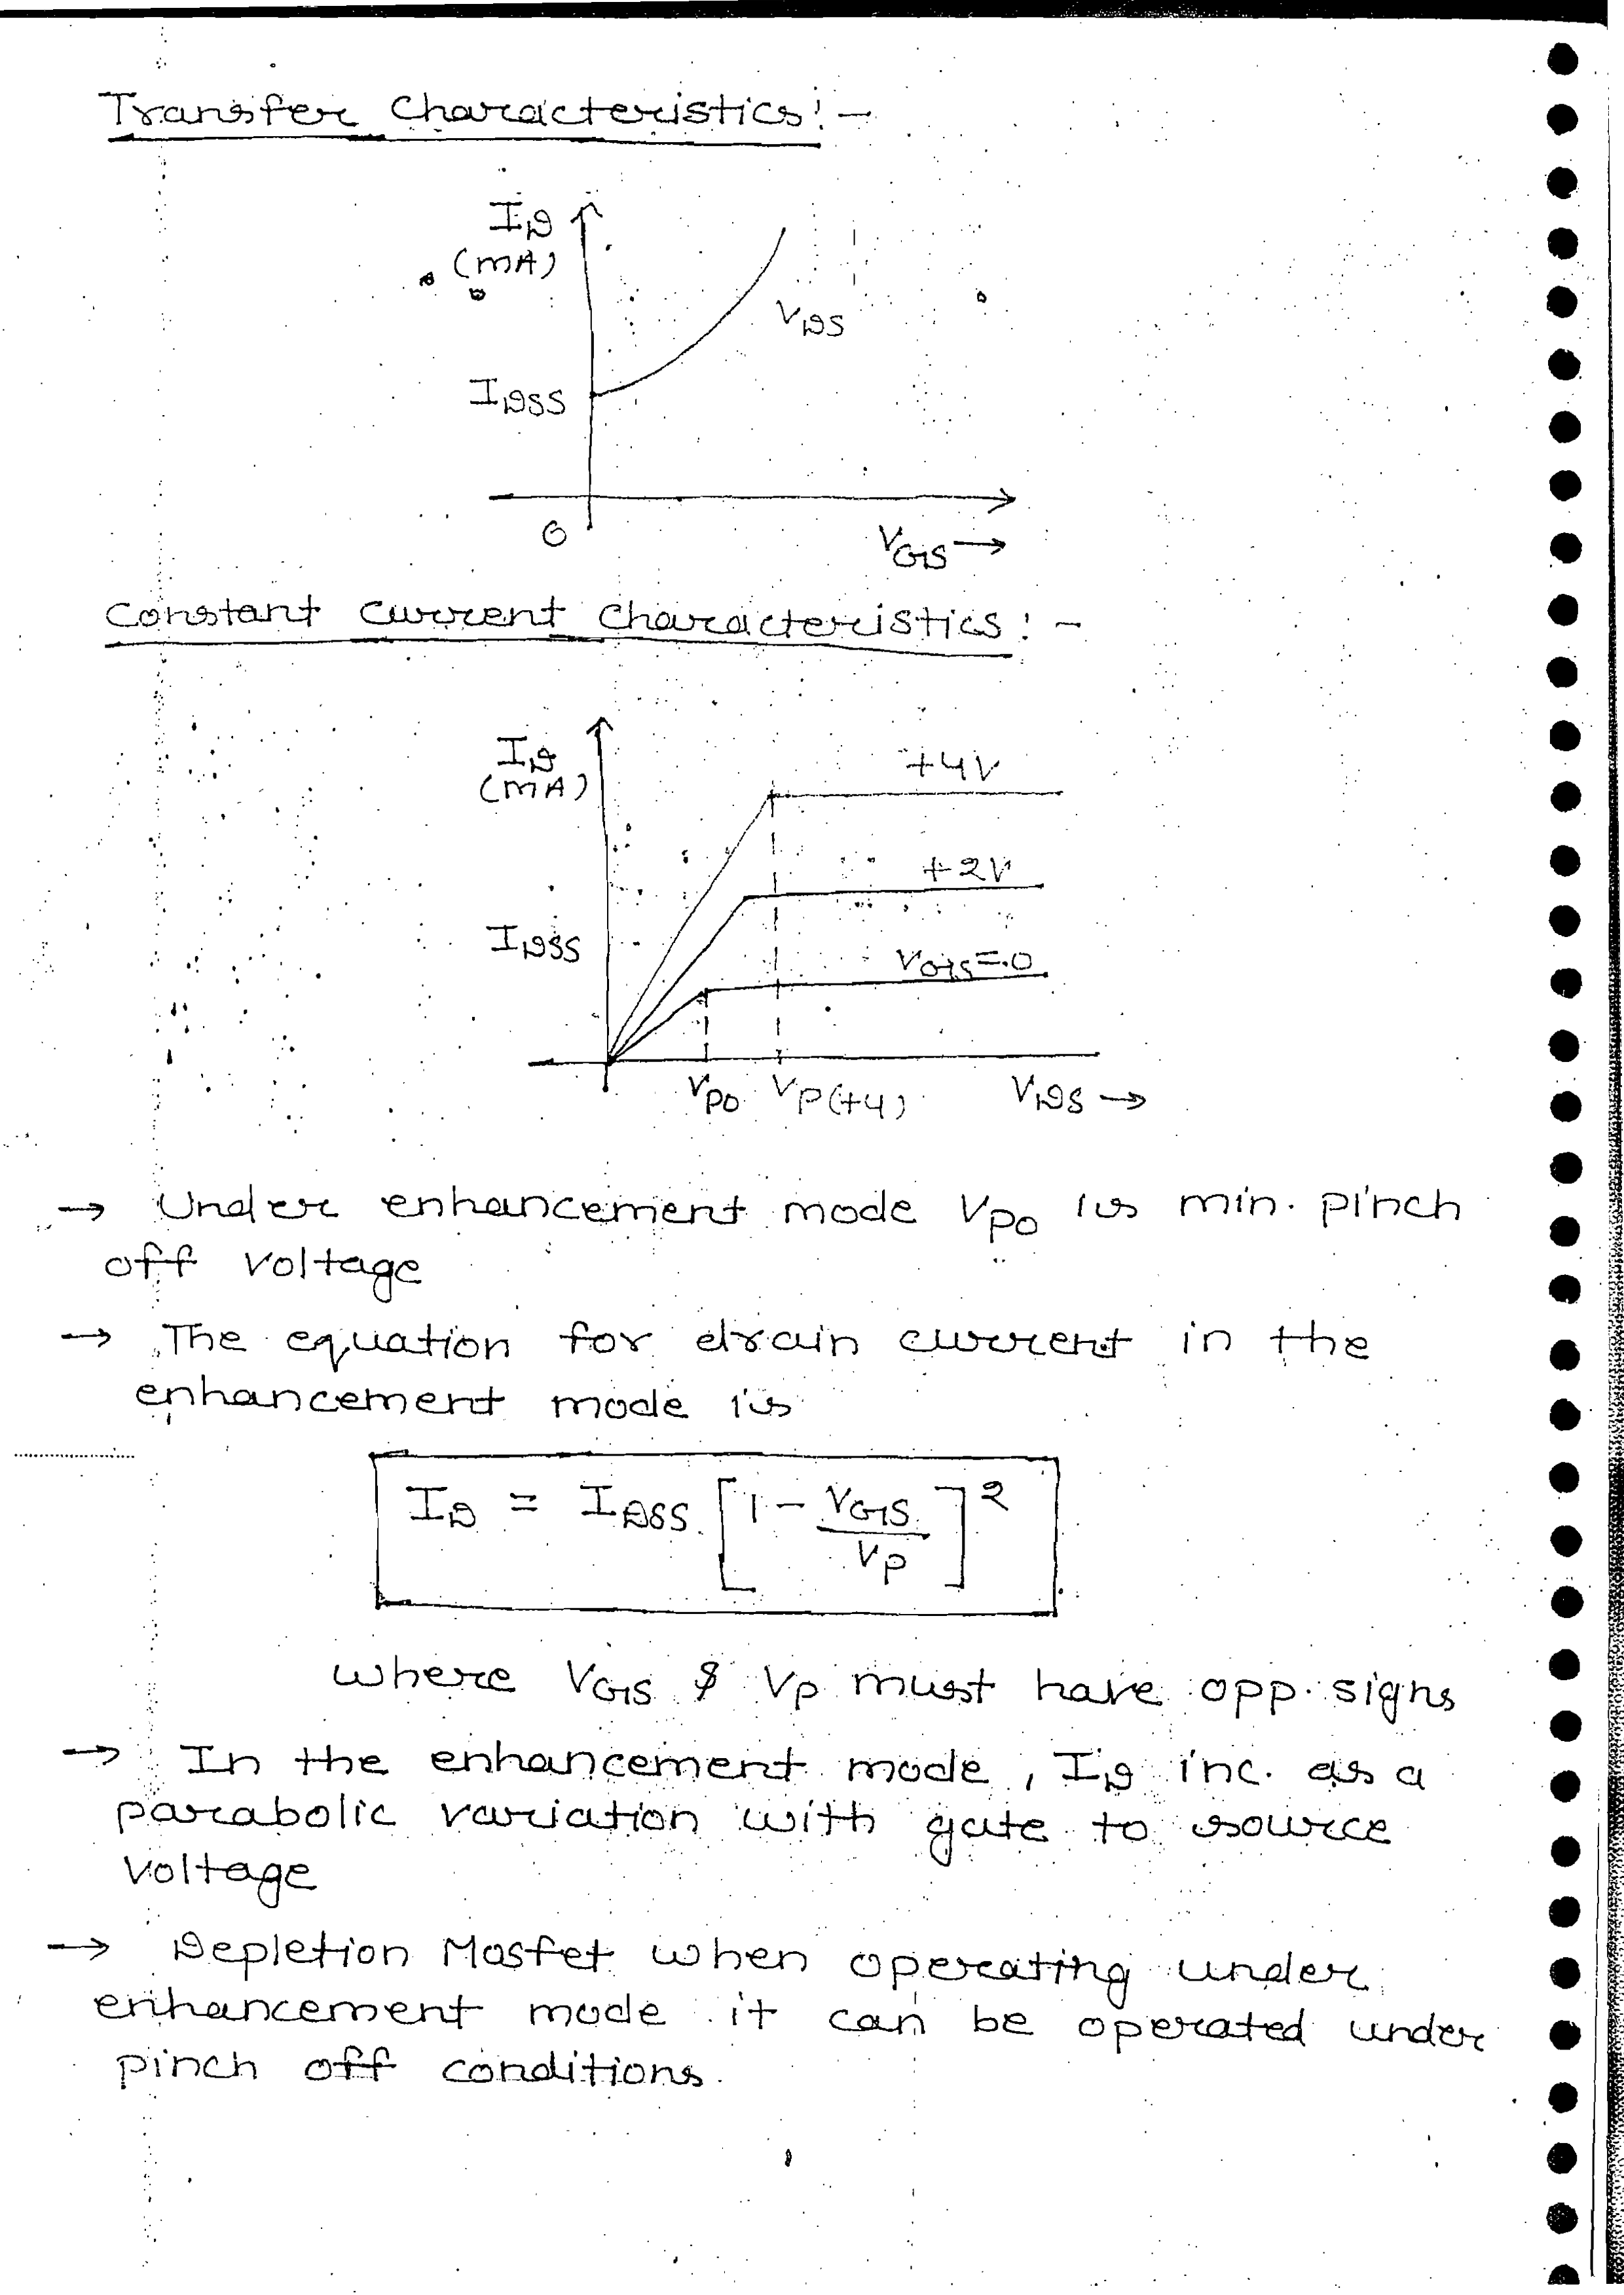 Transfer Characteristics:-
I_D
(mA)
V_DS
I_DSS
0
V_GS →
Constant Current Characteristics:-
I_D
(mA)
+4V
+2V
I_DSS
V_GS=0
V_P0 V_P(+4) V_DS →
→ Under enhancement mode V_P0 is min. pinch
off voltage
→ The equation for drain current in the
enhancement mode is
I_D = I_DSS [1 - V_GS/V_P]^2
where V_GS & V_P must have opp. signs
→ In the enhancement mode, I_D inc. as a
parabolic variation with gate to source
voltage
→ Depletion Mosfet when operating under
enhancement mode it can be operated under
pinch off conditions.